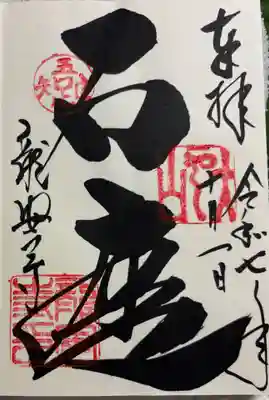 奉拝
令和七年
十月一日
石庭
龍安寺